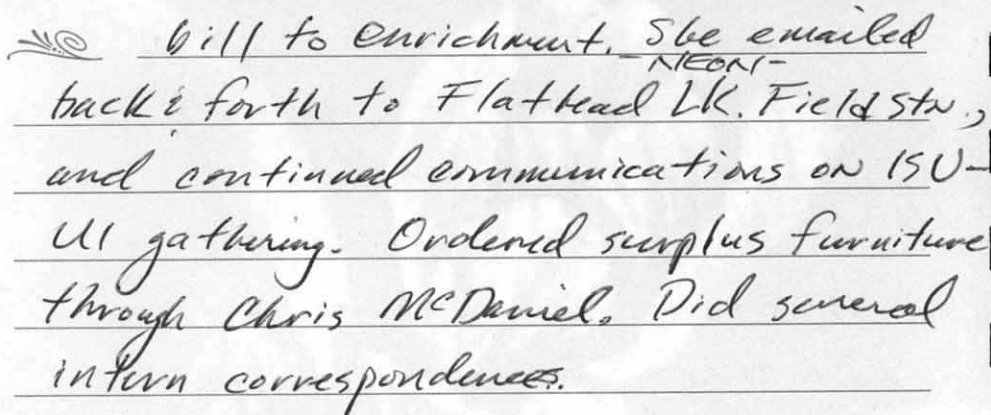 bill to enrichment. She emailed
-NEON-
back & forth to Flathead LK. Field Stn.,
and continued communications on ISU-
UI gathering. Ordered surplus furniture
through Chris McDaniel. Did several
intern correspondences.